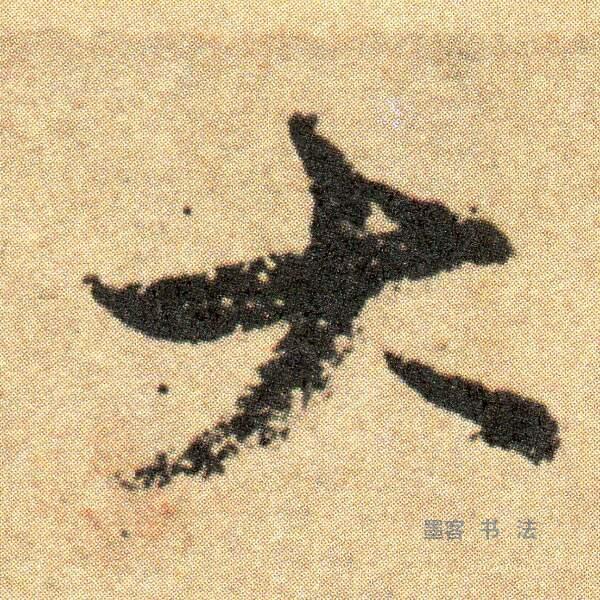 大
墨客 书 法